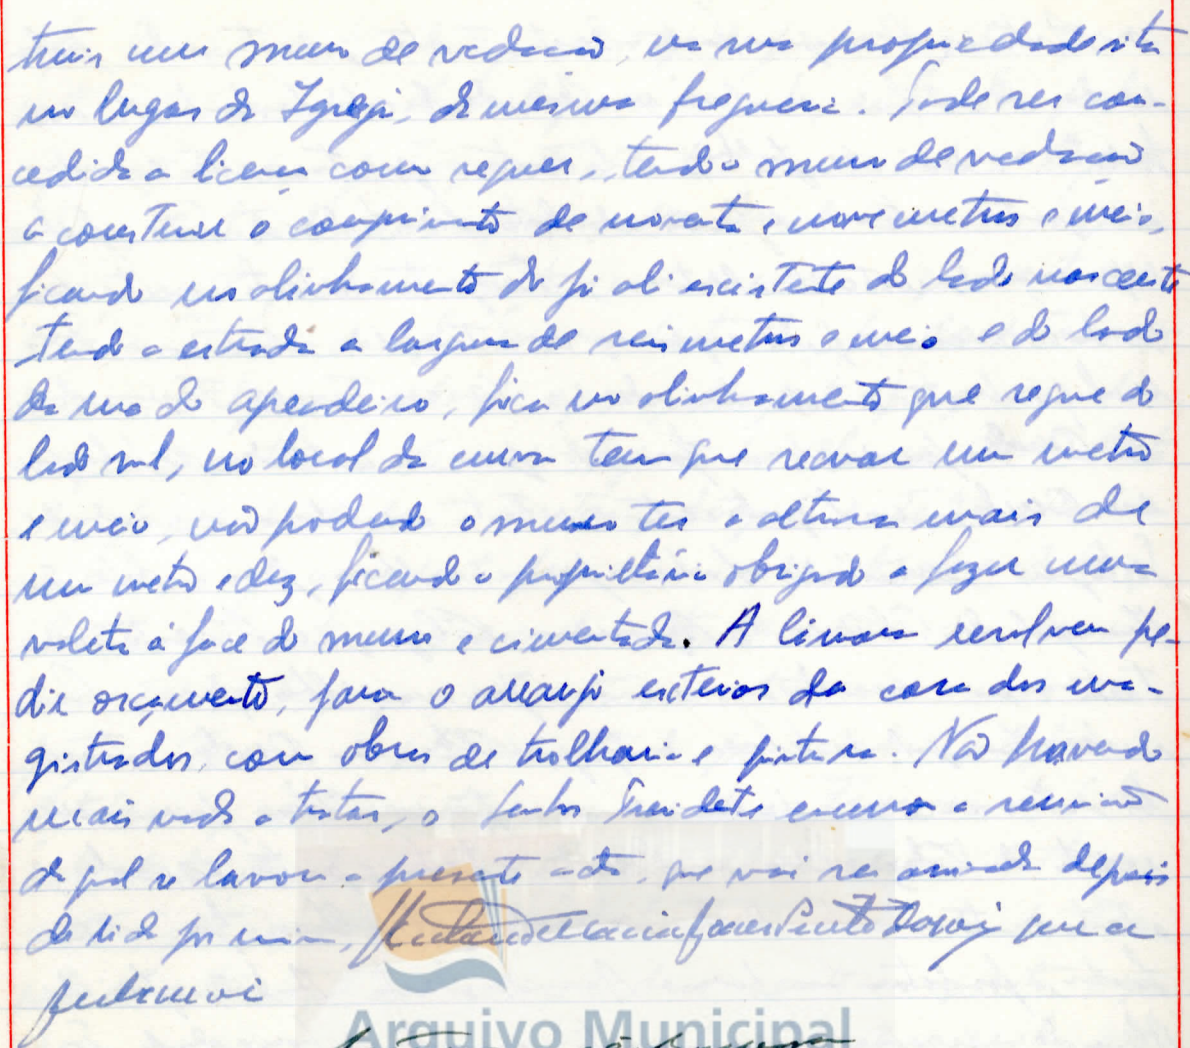 truir um muro de vedação, na sua propriedade sita
no lugar da Igreja, da mesma freguesia. Pode ser con-
cedida a licença como requer, tendo o muro de vedação
a construir o comprimento de noventa e nove metros e meio,
ficando no alinhamento do já ali existente do lado nascente
tendo a estrada a largura de seis metros e meio e do lado
da rua do apeadeiro, fica no alinhamento que segue do
lado sul, no local da curva tem que recuar um metro
e meio, não podendo o muro ter a altura mais de
um metro e dez, ficando o proprietário obrigado a fazer uma
valeta à face do muro e cimentada. A Câmara resolveu pe-
dir orçamento, para o arranjo exterior da casa dos ma-
gistrados, com obras de trolharia e pintura. Não havendo
mais nada a tratar, o Senhor Presidente encerrou a reunião
da qual se lavrou a presente acta, que vai ser assinada depois
de lida por mim, que a
subscrevi
Arquivo Municipal